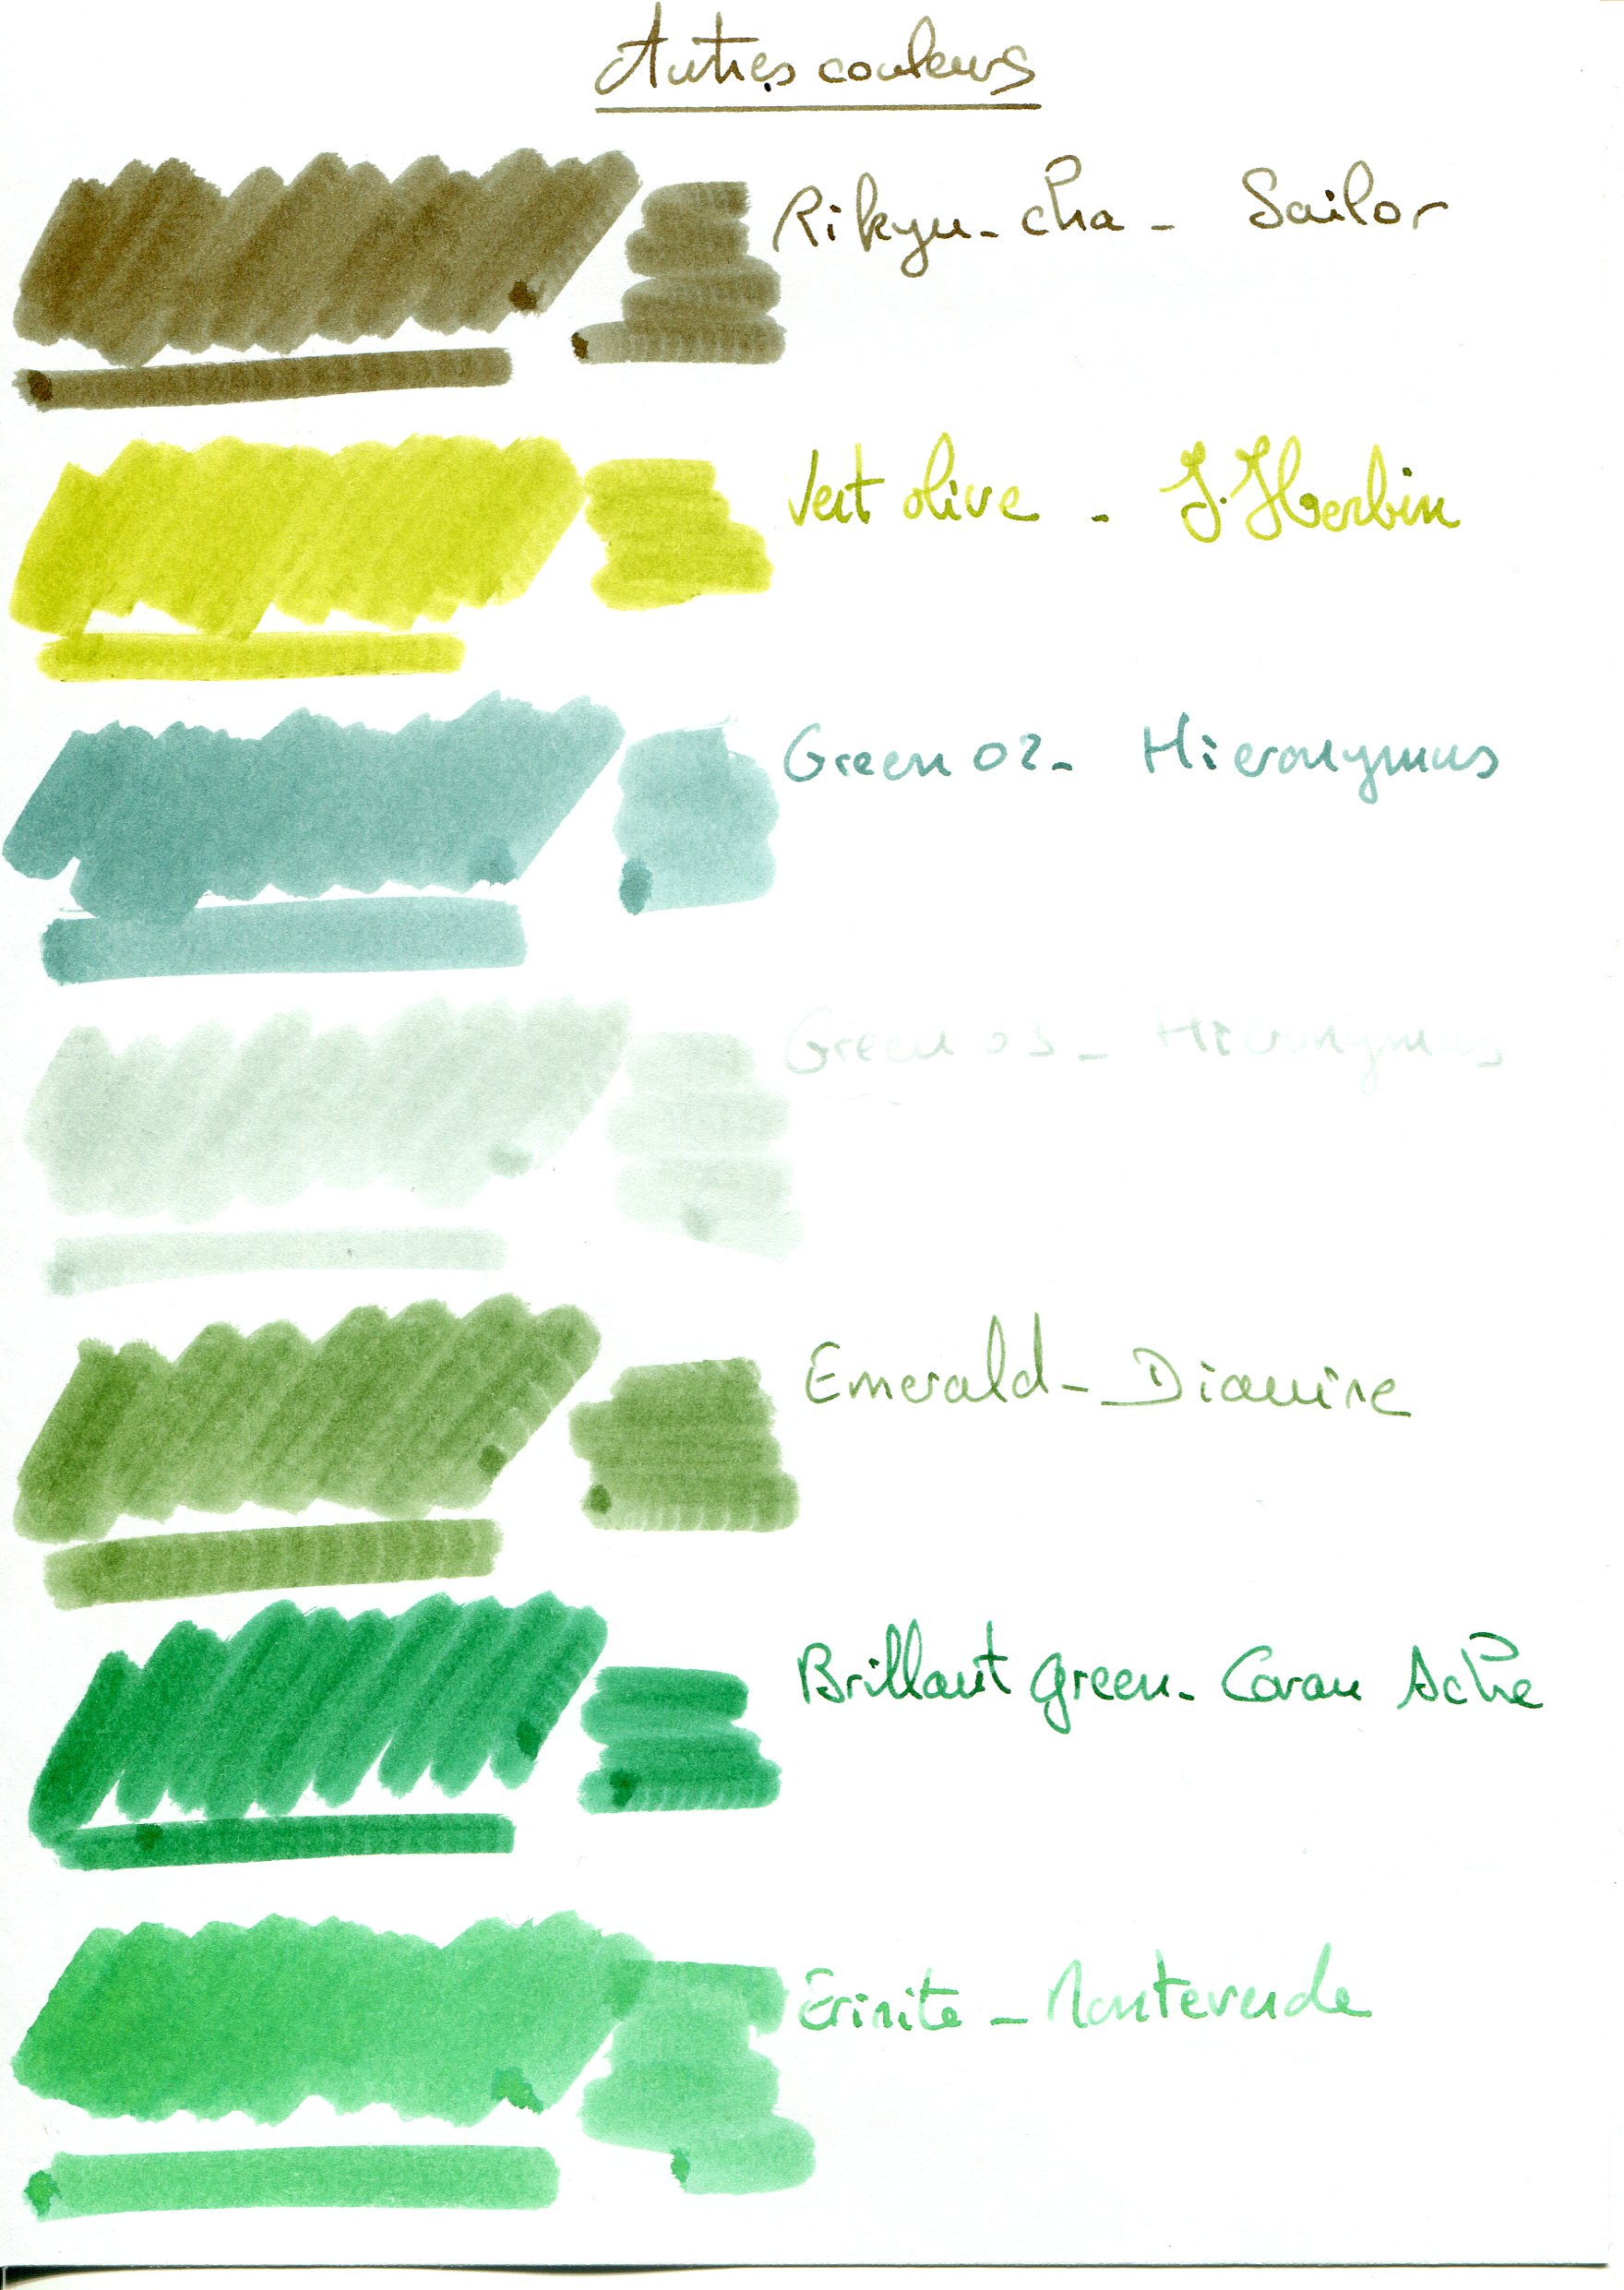 Autres couleurs
Rikyu-cha - Sailor
Vert olive - J. Herbin
Green 02 - Hieronymus
Green 03 - Hieronymus
Emerald - Diamine
Brillant green - Caran Ache
Erinite - Monteverde